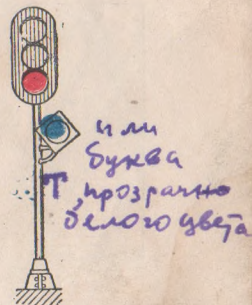 или
буква
Т, прозрачно
белого цвета